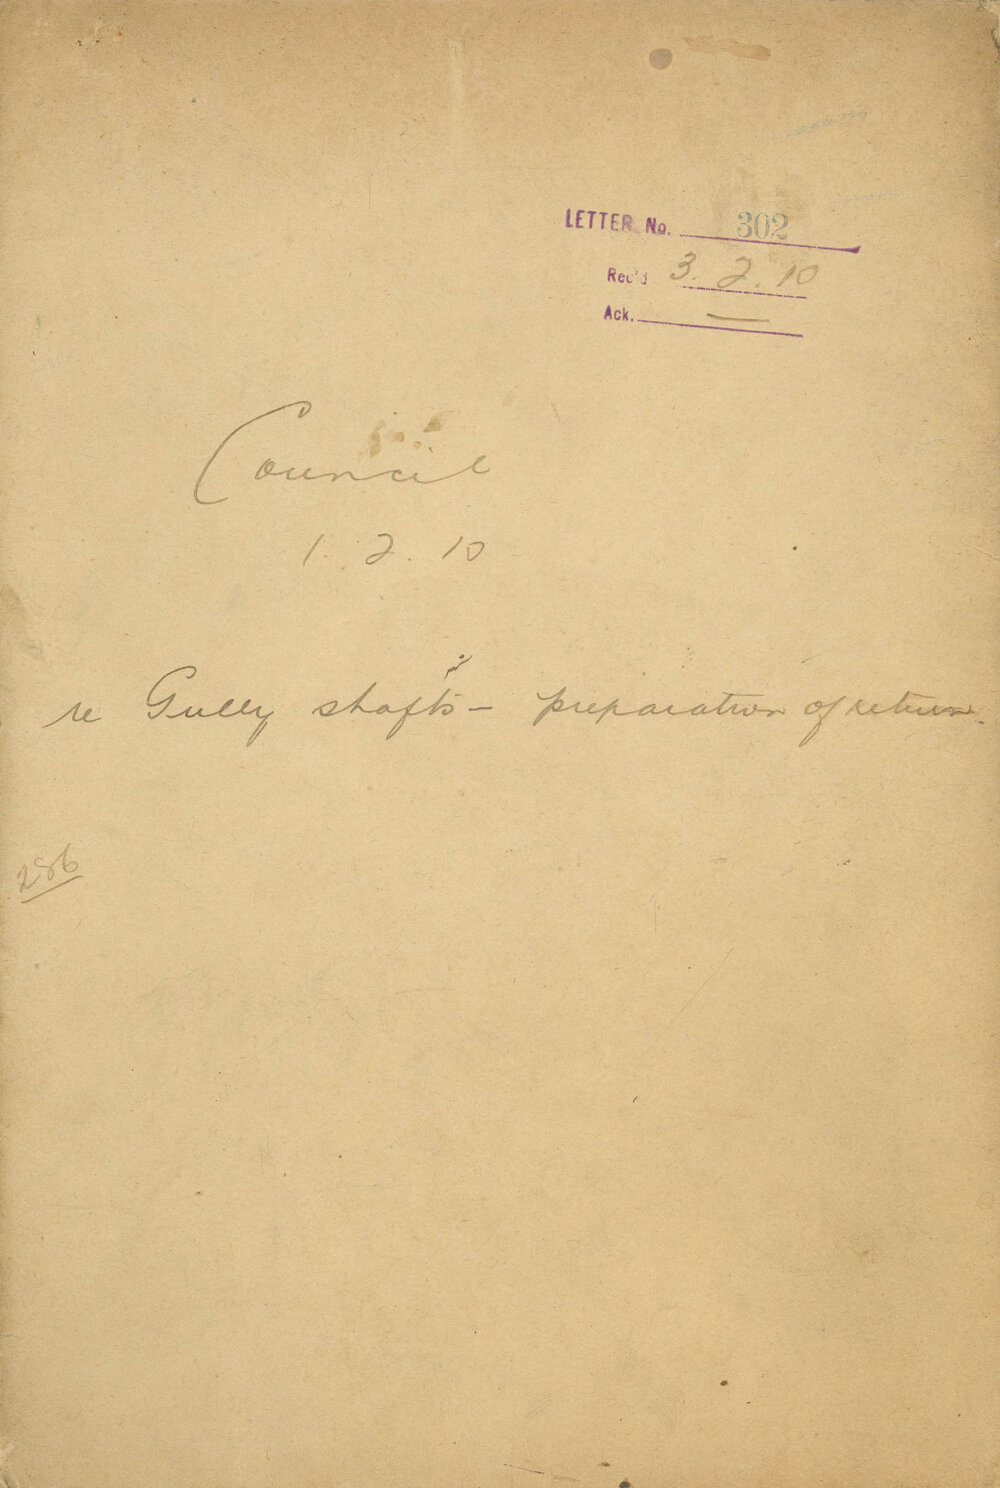 LETTER No. 302
Rec'd 3. 2. 10
Ack. —
Council
1. 2. 10
re Gully shafts — preparation of return.
286